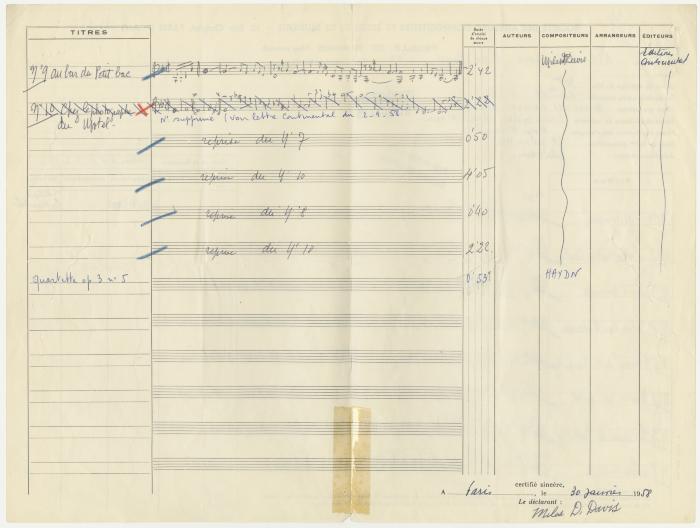 TITRES
Durée d'emploi de chaque œuvre
AUTEURS
COMPOSITEURS
ARRANGEURS
ÉDITEURS
N°9 au bar du Petit bac
2'42
Miles Davis
Editions
Continental
du Motel.
N° supprimé (voir lettre Continental du 2-9-58
reprise du N° 7
0'50
reprise du N° 10
4'05
reprise du N° 8
0'40
reprise du N° 10
2'22
quartette op 3 n° 5
0'53
HAYDN
certifié sincère,
A Paris, le 30 janvier 1958
Le déclarant :
Miles D. Davis